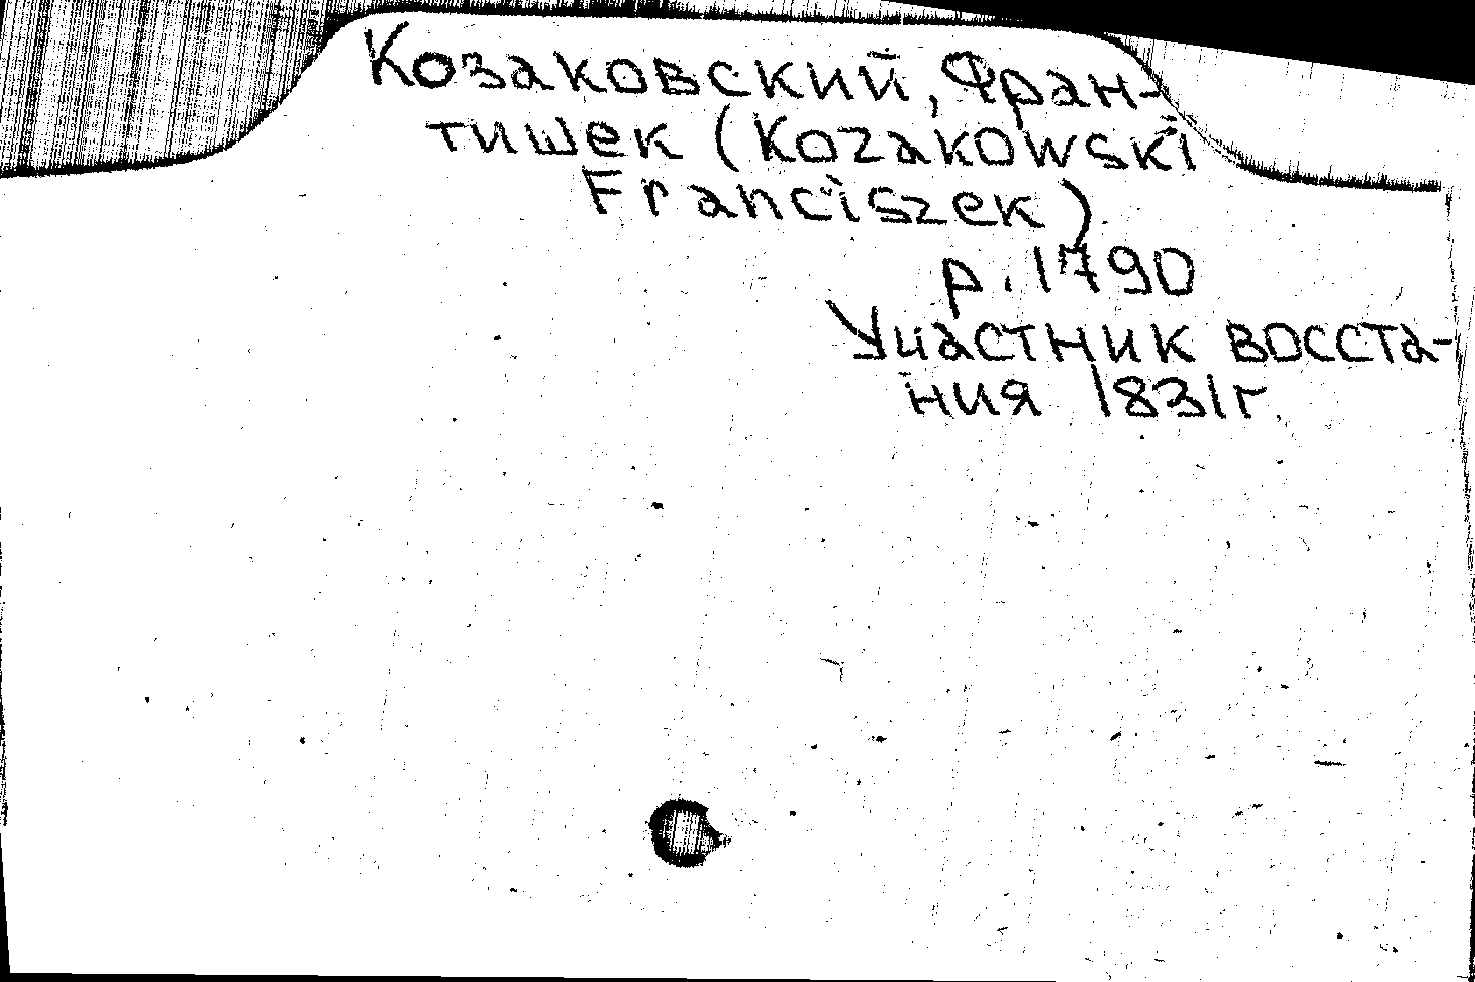 Козаковский, Фран-
тишек (Kozakowski
Franciszek)
р. 1790
Участник восста-
ния 1831г.